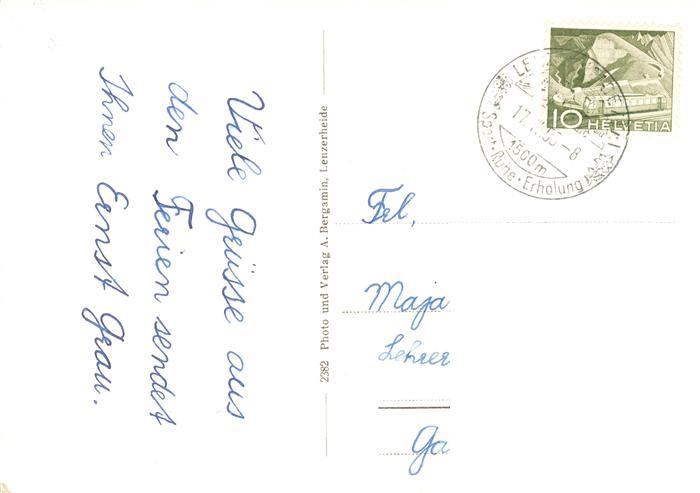 Viele Grüsse aus
den Ferien sendet
Ihnen Ernst Grau.
2382 Photo und Verlag A. Bergamin, Lenzerheide
10 HELVETIA
1500m
Sport • Ruhe • Erholung
Frl,
Maja
Lehrer
Ga